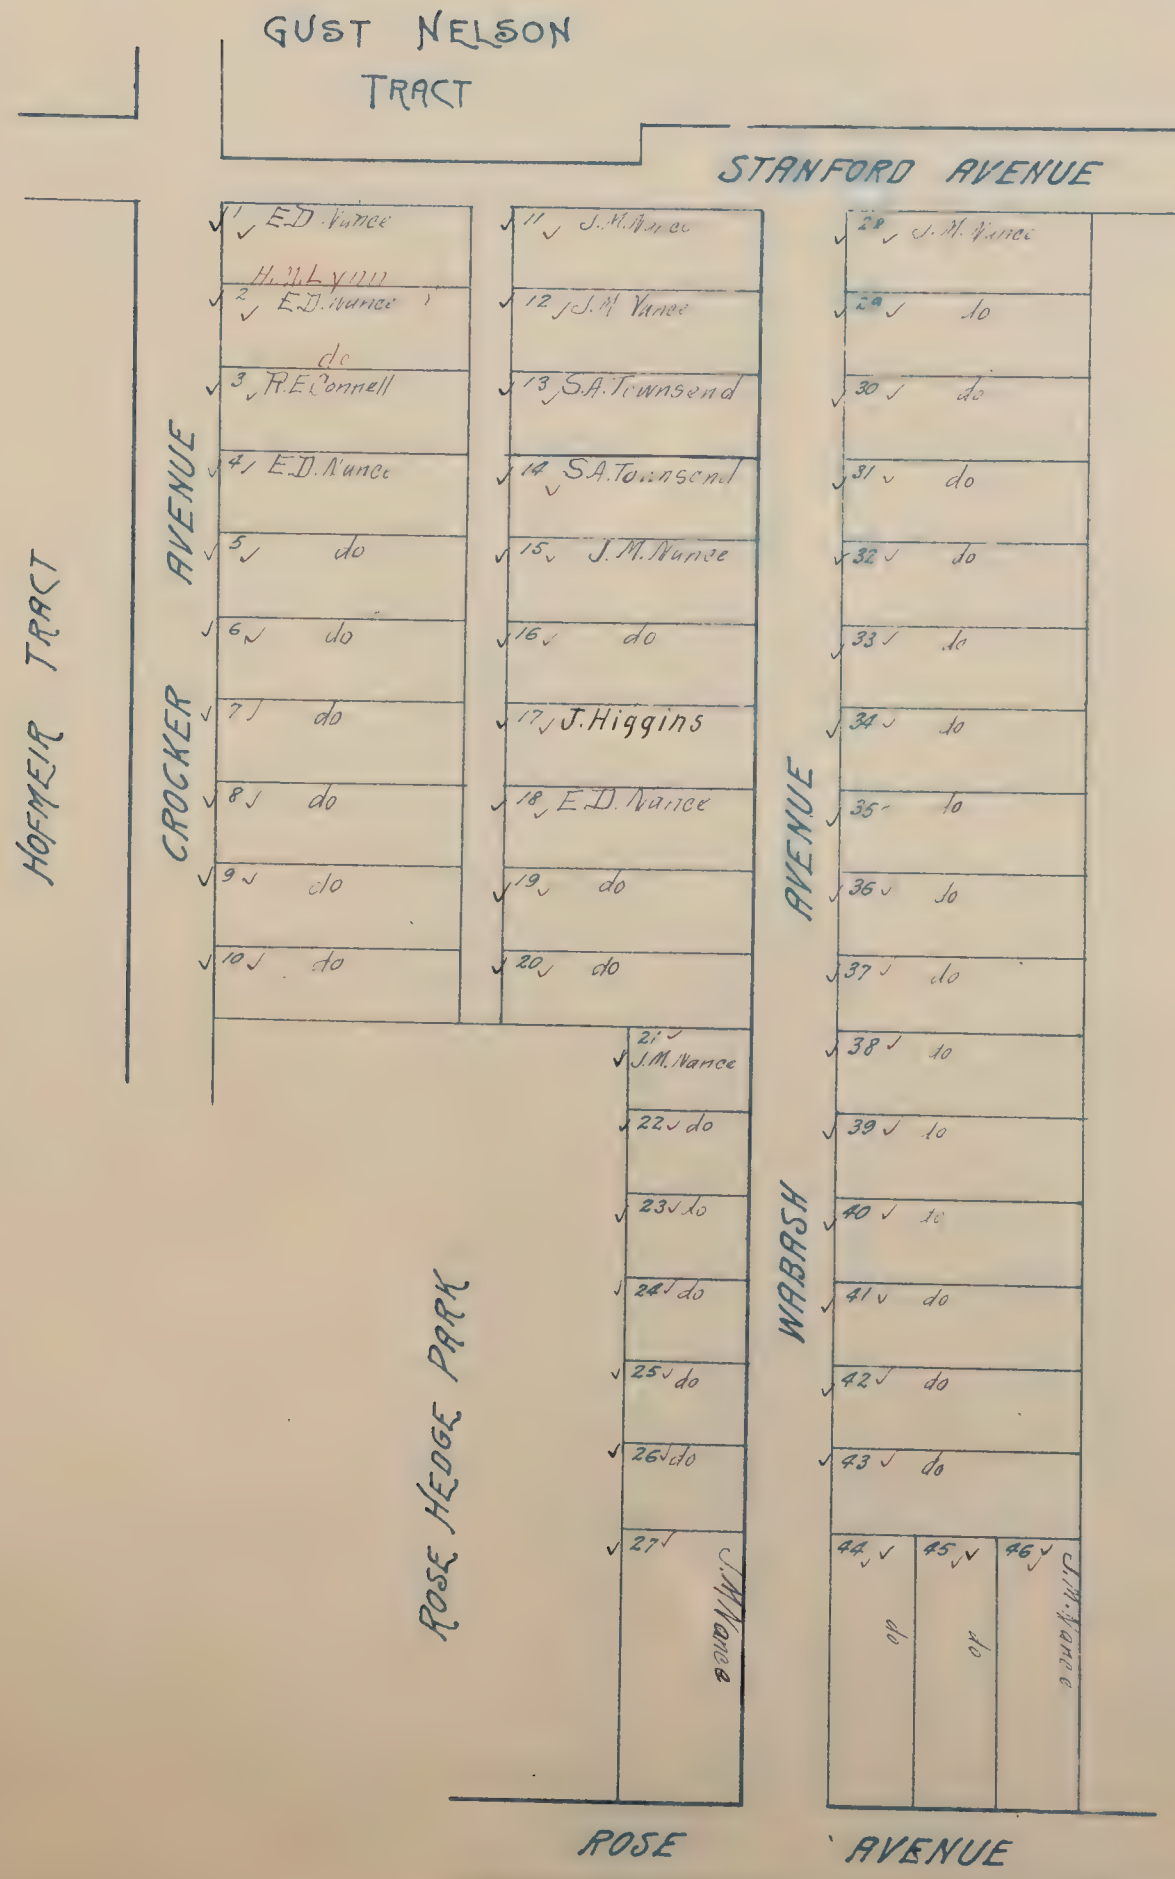 GUST NELSON
TRACT
STANFORD AVENUE
HOFMEIR TRACT
CROCKER AVENUE
1 E.D. Nance
H. M. Lynn
2 E.D. Nance
do
3 R.E. Connell
4 E.D. Nance
5 do
6 do
7 do
8 do
9 do
10 do
11 J.M. Nance
12 J.M Nance
13 S.A. Townsend
14 S.A. Townsend
15 J.M. Nance
16 do
17 J. Higgins
18 E.D. Nance
19 do
20 do
21
J.M. Nance
22 do
23 do
24 do
25 do
26 do
27
J.M Nance
ROSE HEDGE PARK
WABASH AVENUE
28 J.M. Nance
29 do
30 do
31 do
32 do
33 do
34 do
35 do
36 do
37 do
38 do
39 do
40 do
41 do
42 do
43 do
44
do
45
do
46
J.M. Nance
ROSE AVENUE